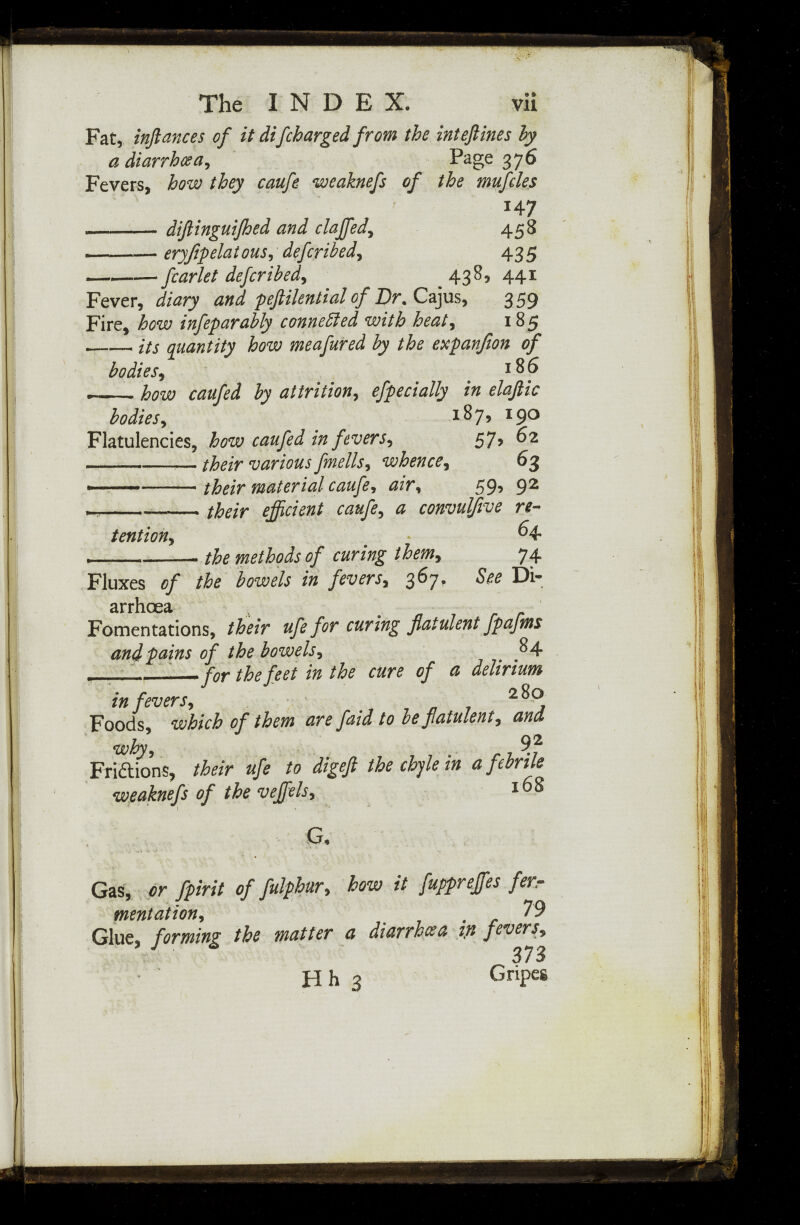 The INDEX. vii
Fat, inſtances of it diſcharged from the inteſtines by
a diarrhœa, Page 376
Fevers, how they cauſe weakneſs of the muſcles
147
——— diſtinguiſhed and claſſed, 458
——— eryſipelatous, deſcribed, 435
——— ſcarlet deſcribed, 438, 441
Fever, diary and peſtilential of Dr. Cajus, 359
Fire, how inſeparably connected with heat, 185
—— its quantity how meaſured by the expanſion of
bodies, 186
—— how cauſed by attrition, eſpecially in elaſtic
bodies, 187, 190
Flatulencies, how cauſed in fevers, 57, 62
———— their various ſmells, whence, 63
———— their material cauſe, air, 59, 92
———— their efficient cauſe, a convulſive re-
tention, 64
———— the methods of curing them, 74
Fluxes of the bowels in fevers, 367. See Di-
arrhœa
Fomentations, their uſe for curing flatulent ſpaſms
and pains of the bowels, 84
———— for the feet in the cure of a delirium
in fevers, 280
Foods, which of them are ſaid to be flatulent, and
why, 92
Frictions, their uſe to digeſt the chyle in a febrile
weakneſs of the veſſels, 168
G.
Gas, or ſpirit of ſulphur, how it ſuppreſſes fer-
mentation, 79
Glue, forming the matter a diarrhœa in fevers,
373
Hh 3 Gripes